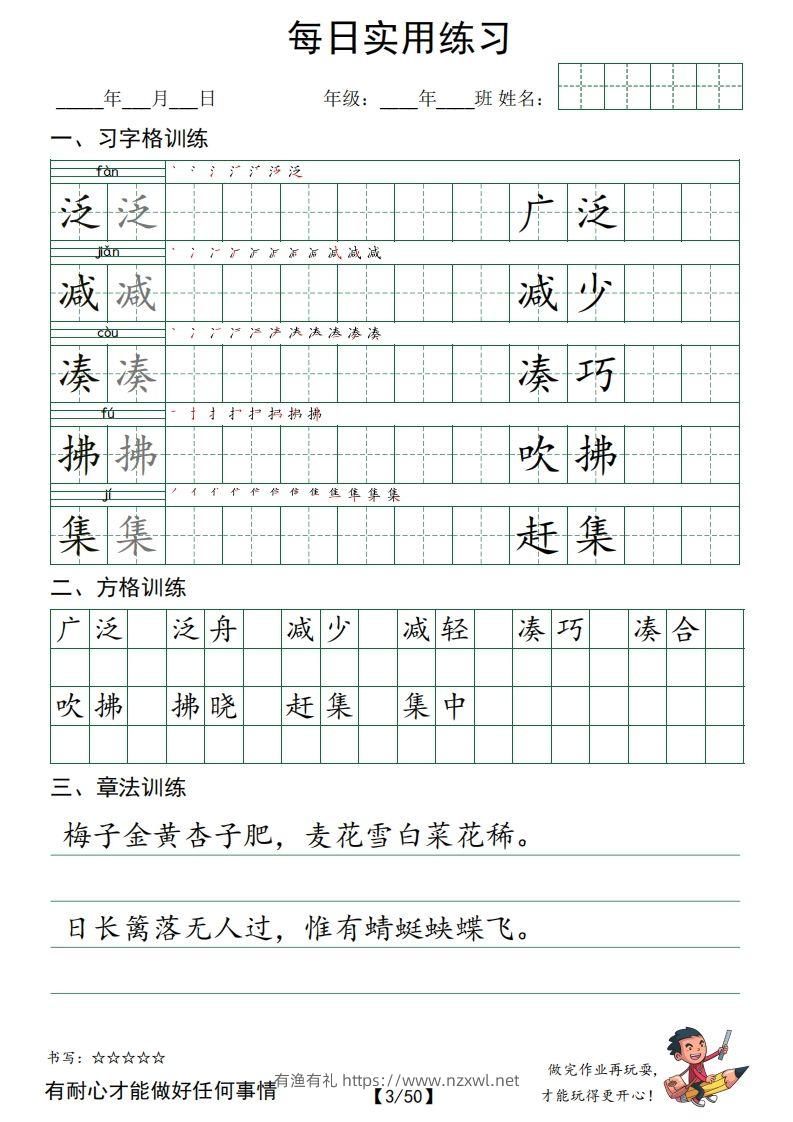 每日实用练习
_____年___月___日 年级：____年____班 姓名：
一、习字格训练
fàn
泛 泛 广 泛
jiǎn
减 减 减 少
còu
凑 凑 凑 巧
fú
拂 拂 吹 拂
jí
集 集 赶 集
二、方格训练
广泛 泛舟 减少 减轻 凑巧 凑合
吹拂 拂晓 赶集 集中
三、章法训练
梅子金黄杏子肥，麦花雪白菜花稀。
日长篱落无人过，惟有蜻蜓蛱蝶飞。
书写：☆☆☆☆☆
有耐心才能做好任何事情
有渔有礼 https://www.nzxwl.net
【3/50】
做完作业再玩耍，
才能玩得更开心！